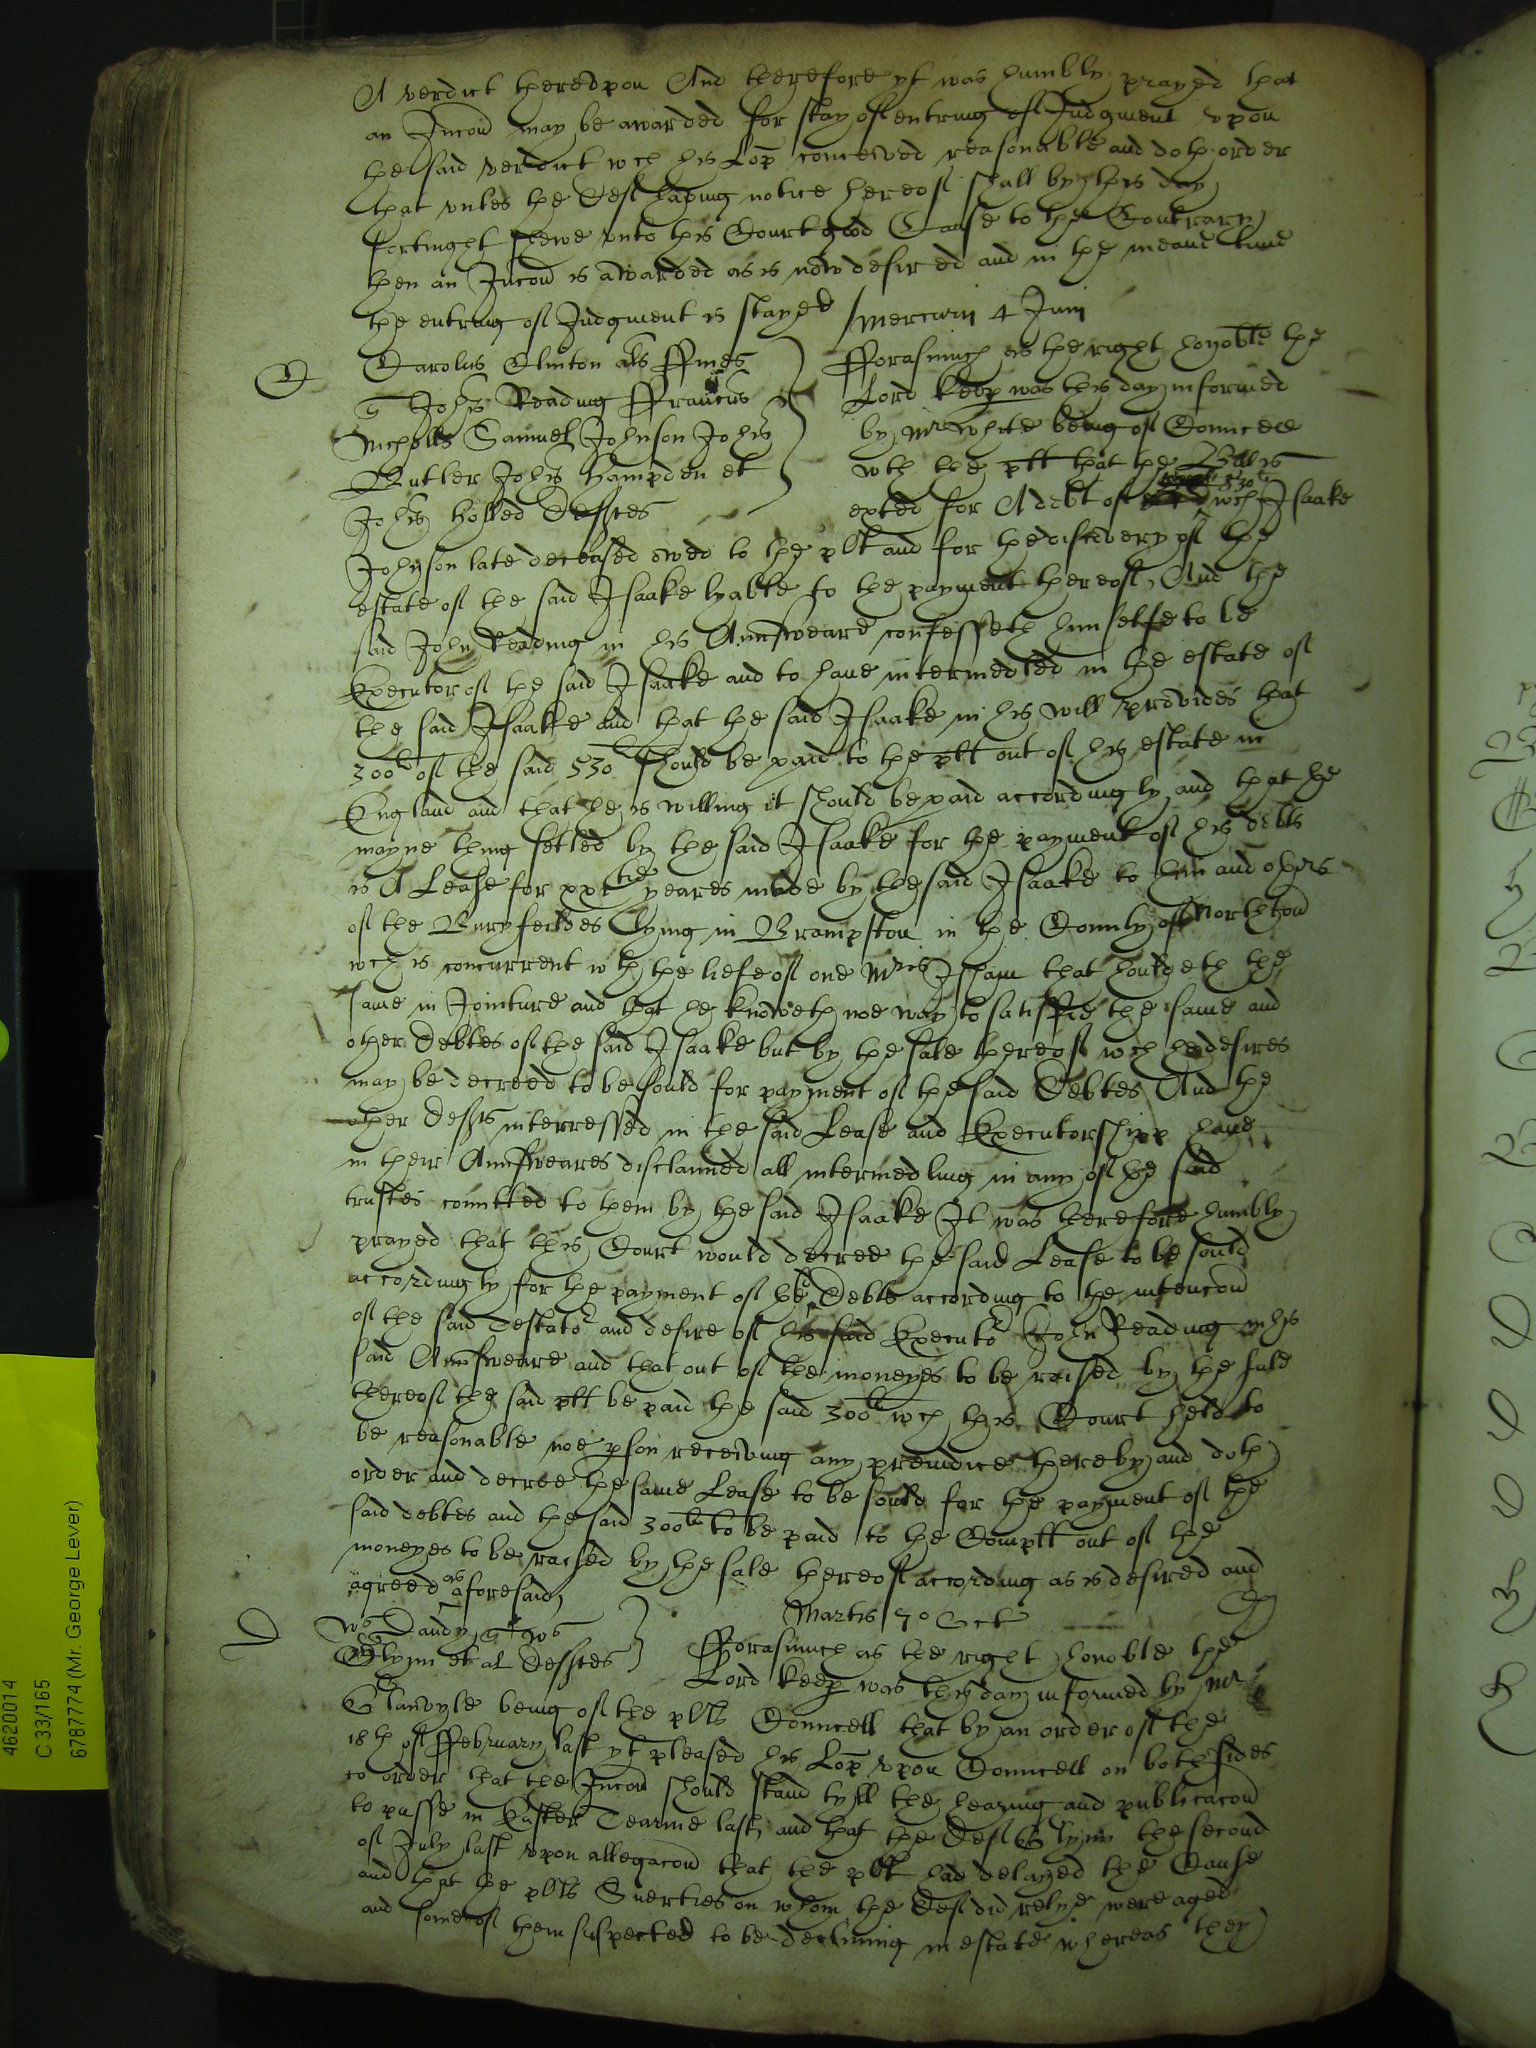 A verdict thereupon And therefore yt was humbly prayed that
an Iniuncon may be awarded for stay of entring of Iudgment vpon
the said verdict wch his Lop conceived reasonable and doth order
that vnles the Deft having notice hereof shall by this day
fortnight shewe vnto this Court good Cause to the Contrary
then an Iniuncon is awarded as is now desired and in the meane time
the entring of Iudgment is stayed / Mercurij 4 Junij
C Carolus Clinton als ffines
q Johes Reading ffrancus
Nicholls Samuel Johnson Johes
Butler Johes Hampden et
Johes Holled Deftes
fforasmuch as the right honoble the
Lord keep was this day informed
by Mr White being of Councell
wth the plt that the Bill is
exted for A debt of 530li wch Isaake
Johnson late deceased owed to the plt and for the discovery of the
estate of the said Isaake lyable to the payment thereof, And the
said John Reading in his Aunsweare confesseth himselfe to be
Executor of the said Isaake and to haue intermedled in the estate of
the said Isaake and that the said Isaake in his will provides that
300li of the said 530li should be paid to the plt out of his estate in
England and that he is willing it should be paid accordingly and that the
mayne thing setled by the said Isaake for the payment of his debts
is A Lease for xxxtie yeares made by the said Isaake to him and others
of the Buryfeildes lying in Brampston in the County of Northton
wch is concurrent wth the liefe of one Mris Isham that houldeth the
same in Jointure and that he knoweth noe way to satisffie the same and
other Debtes of the said Isaake but by the sale thereof wch he desires
may be decreed to be sould for payment of the said Debtes And the
other Defts interressed in the said Lease and Executorshipp haue
in their Aunsweares disclaimed all intermedling in any of the said
trustes comitted to them by the said Isaake It was therefore humbly
prayed that this Court would decree the said Lease to be sould
accordingly for the payment of the sd Debte according to the intencon
of the said Testator and desire of his said Executor John Reading in his
said Aunsweare and that out of the moneyes to be raised by the sale
thereof the said plt be paid the said 300li wch this Court held to
be reasonable noe pson receiving any preiudice thereby and doth
order and decree the same Lease to be sould for the payment of the
said debtes and the said 300li to be paid to the Complt out of the
moneyes to be raised by the sale thereof according as is desired and
agreed as aforesaid
Martis 7o Oct
D Ws Dandy q Ws
Glynn et al Deftes
fforasmuch as the right honoble the
Lord keep was this day informed by Mr
Glanvyle being of the plts Councell that by an order of the
18th of ffebruary last yt pleased his Lop vpon Councell on both sides
to order that the Iniuncon should stand tyll the hearing and publicacon
to passe in Easter Tearme last, and that the Deft Glynn the second
of July last vpon allegacon that the plt had delayed the Cause
and that the plts Suerties on whom the Deft did relye were aged
and some of them suspected to be declining in estate whereas they
4620014
C 33/165
6787774 (Mr. George Lever)